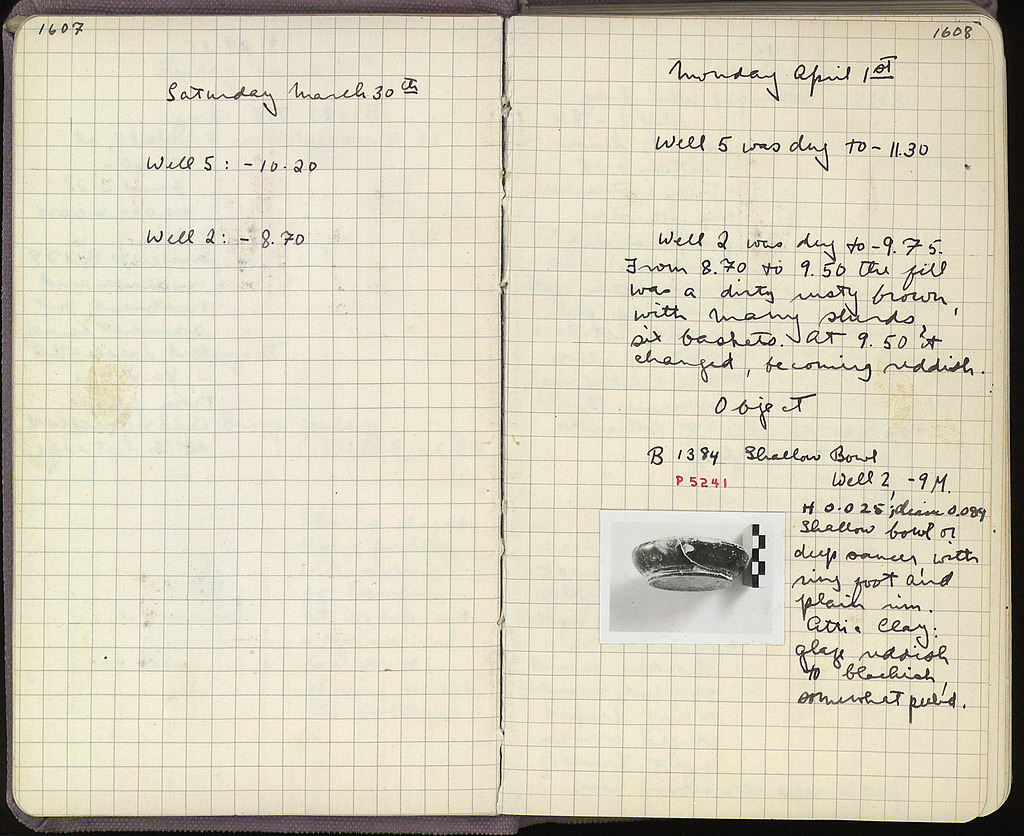 1607
Saturday March 30th
Well 5: - 10.20
Well 2: - 8.70
1608
Monday April 1st
Well 5 was dug to - 11.30
Well 2 was dug to -9.75.
From 8.70 to 9.50 the fill
was a dirty rusty brown,
with many sherds,
six baskets. At 9.50 it
changed, becoming reddish.
Object
B 1384 Shallow Bowl
P 5241
Well 2, -9 M.
H 0.025; diam 0.089
Shallow bowl or
deep saucer, with
ring foot and
plain rim.
Attic Clay:
glaze reddish
to blackish,
somewhat peel'd.